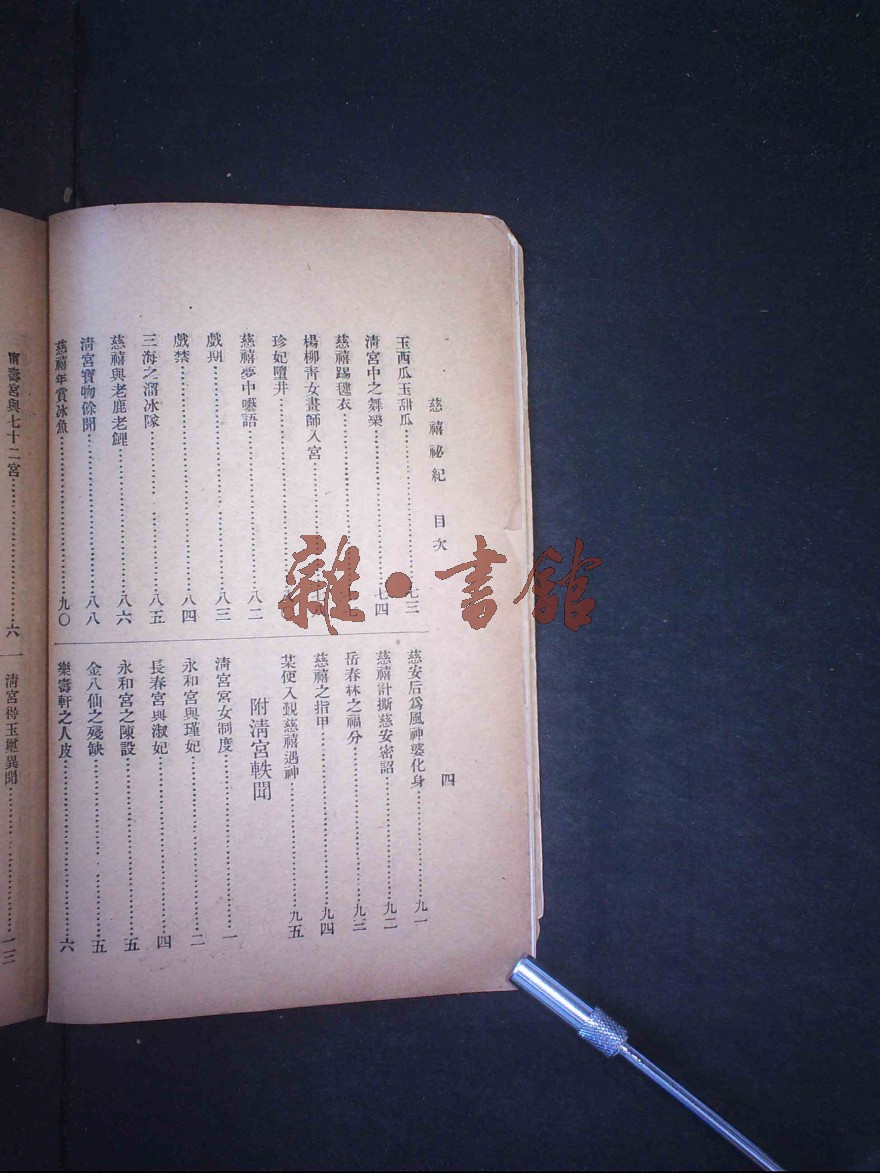 慈禧祕紀　目次
四
玉西瓜玉甜瓜……七三
清宮中之舞樂……七四
慈禧踢毽衣……
楊柳靑女畫師入宮……
珍妃墮井……
慈禧夢中囈語……八二
戲期……八三
戲禁……八四
三海之溜冰隊……八五
慈禧與老鹿老鯉……八六
清宮寶物餘聞……八八
慈禧年賞冰魚……九〇
慈安后爲風神婆化身……九一
慈禧計撕慈安密詔……九二
岳春林之福分……九三
慈禧之指甲……九四
某使入覲慈禧遇神……九五
附淸宮軼聞
淸宮宮女制度……一
永和宮與瑾妃……二
長春宮與淑妃……四
永和宮之陳設……五
金八仙之殘缺……五
樂壽軒之人皮……六
甯壽宮與七十二宮……六
淸宮得玉璽異聞……一三
雜·書館